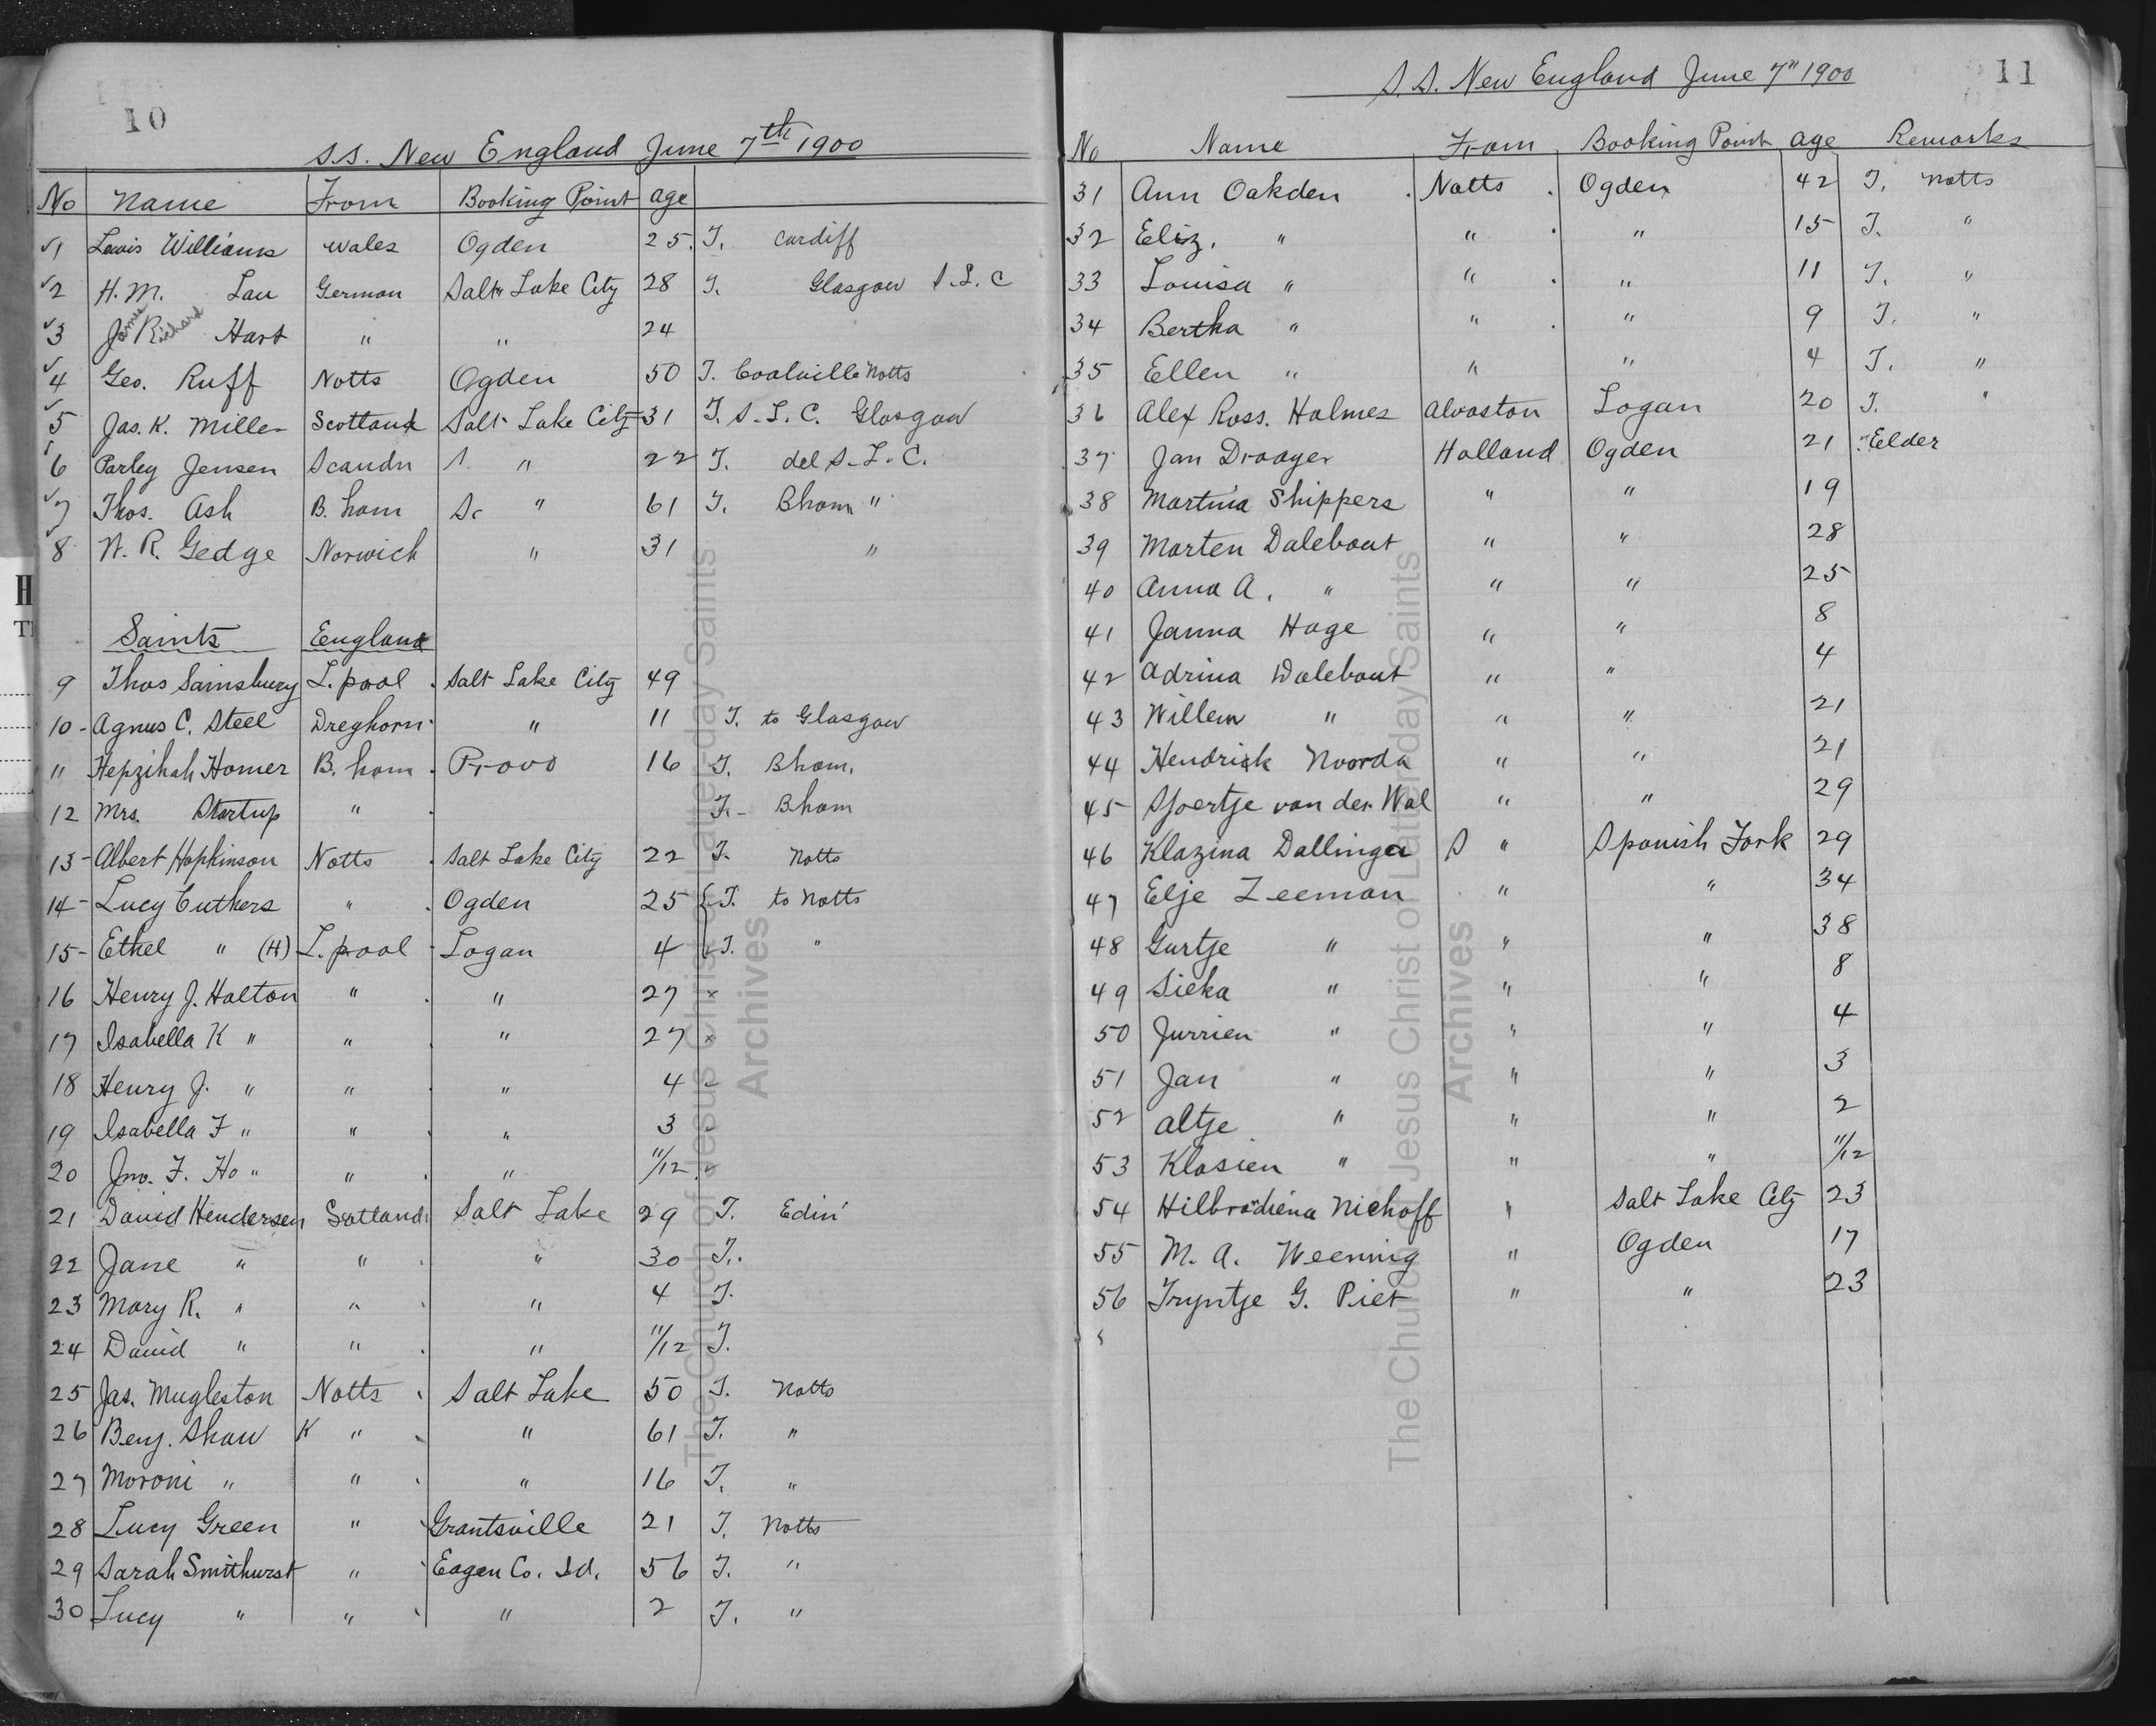 10
S.S. New England June 7th 1900
No Name From Booking Point age
1 Lewis Williams Wales Ogden 25. T. Cardiff
2 H. M. Lau German Salt Lake City 28 T. Glasgow S.L.C
3 James Richard Hart " " 24
4 Geo. Ruff Notts Ogden 50 T. Coalville Notts
5 Jas. K. Miller Scotland Salt Lake City 31 T. S.L.C. Glasgow
6 Parley Jensen Scandn S. " 22 T. del S.L.C.
7 Thos. Ash B.ham S. " 61 T. Bham "
8 W. R. Gedge Norwich " 31 "
Saints England
9 Thos Sainsbury L.pool Salt Lake City 49
10 Agnus C. Steel Dreghorn " 11 T. to Glasgow
11 Hepzibah Homer B.ham Provo 16 T. Bham.
12 Mrs. Startup " T. Bham
13 Albert Hopkinson Notts Salt Lake City 22 T. Notts
14 Lucy Cuthers " Ogden 25 T. to Notts
15 Ethel " (H) L.pool Logan 4 T. "
16 Henry J. Halton " " 27 ×
17 Isabella K " " " 27 ×
18 Henry J. " " " 4
19 Isabella F " " " 3
20 Jno. F. Ho " " " 11/12
21 David Hendersen Scotland Salt Lake 29 T. Edin'
22 Jane " " " 30 T.
23 Mary R. " " " 4 T.
24 David " " " 11/12 T.
25 Jas. Mugleston Notts Salt Lake 50 T. Notts
26 Benj. Shaw K " " 61 T. "
27 Moroni " " " 16 T. "
28 Lucy Green " Grantsville 21 T. Notts
29 Sarah Smithurst " Eagen Co. Id. 56 T. "
30 Lucy " " " 2 T. "
The Church of Jesus Christ of Latter-day Saints
Archives
11
S.S. New England June 7" 1900
No Name From Booking Point age Remarks
31 Ann Oakden Notts Ogden 42 T. Notts
32 Eliz. " " " 15 T. "
33 Louisa " " " 11 T. "
34 Bertha " " " 9 T. "
35 Ellen " " " 4 T. "
36 Alex Ross. Holmes Alvaston Logan 20 T. "
37 Jan Draayer Holland Ogden 21 Elder
38 Martina Shippers " " 19
39 Marten Dalebout " " 28
40 Anna A. " " " 25
41 Janna Hage " " 8
42 Adrina Dalebout " " 4
43 Willem " " " 21
44 Hendrick Noorda " " 21
45 Sjoertje van der Wal " " 29
46 Klazina Dallinga S " Spanish Fork 29
47 Elje Zeeman " " 34
48 Gurtje " " " 38
49 Sieka " " " 8
50 Jurrien " " " 4
51 Jan " " " 3
52 Altje " " " 2
53 Klasien " " " 11/12
54 Hilbradiena Niehoff " Salt Lake City 23
55 M. A. Weening " Ogden 17
56 Tryntje G. Piet " " 23
The Church of Jesus Christ of Latter-day Saints
Archives